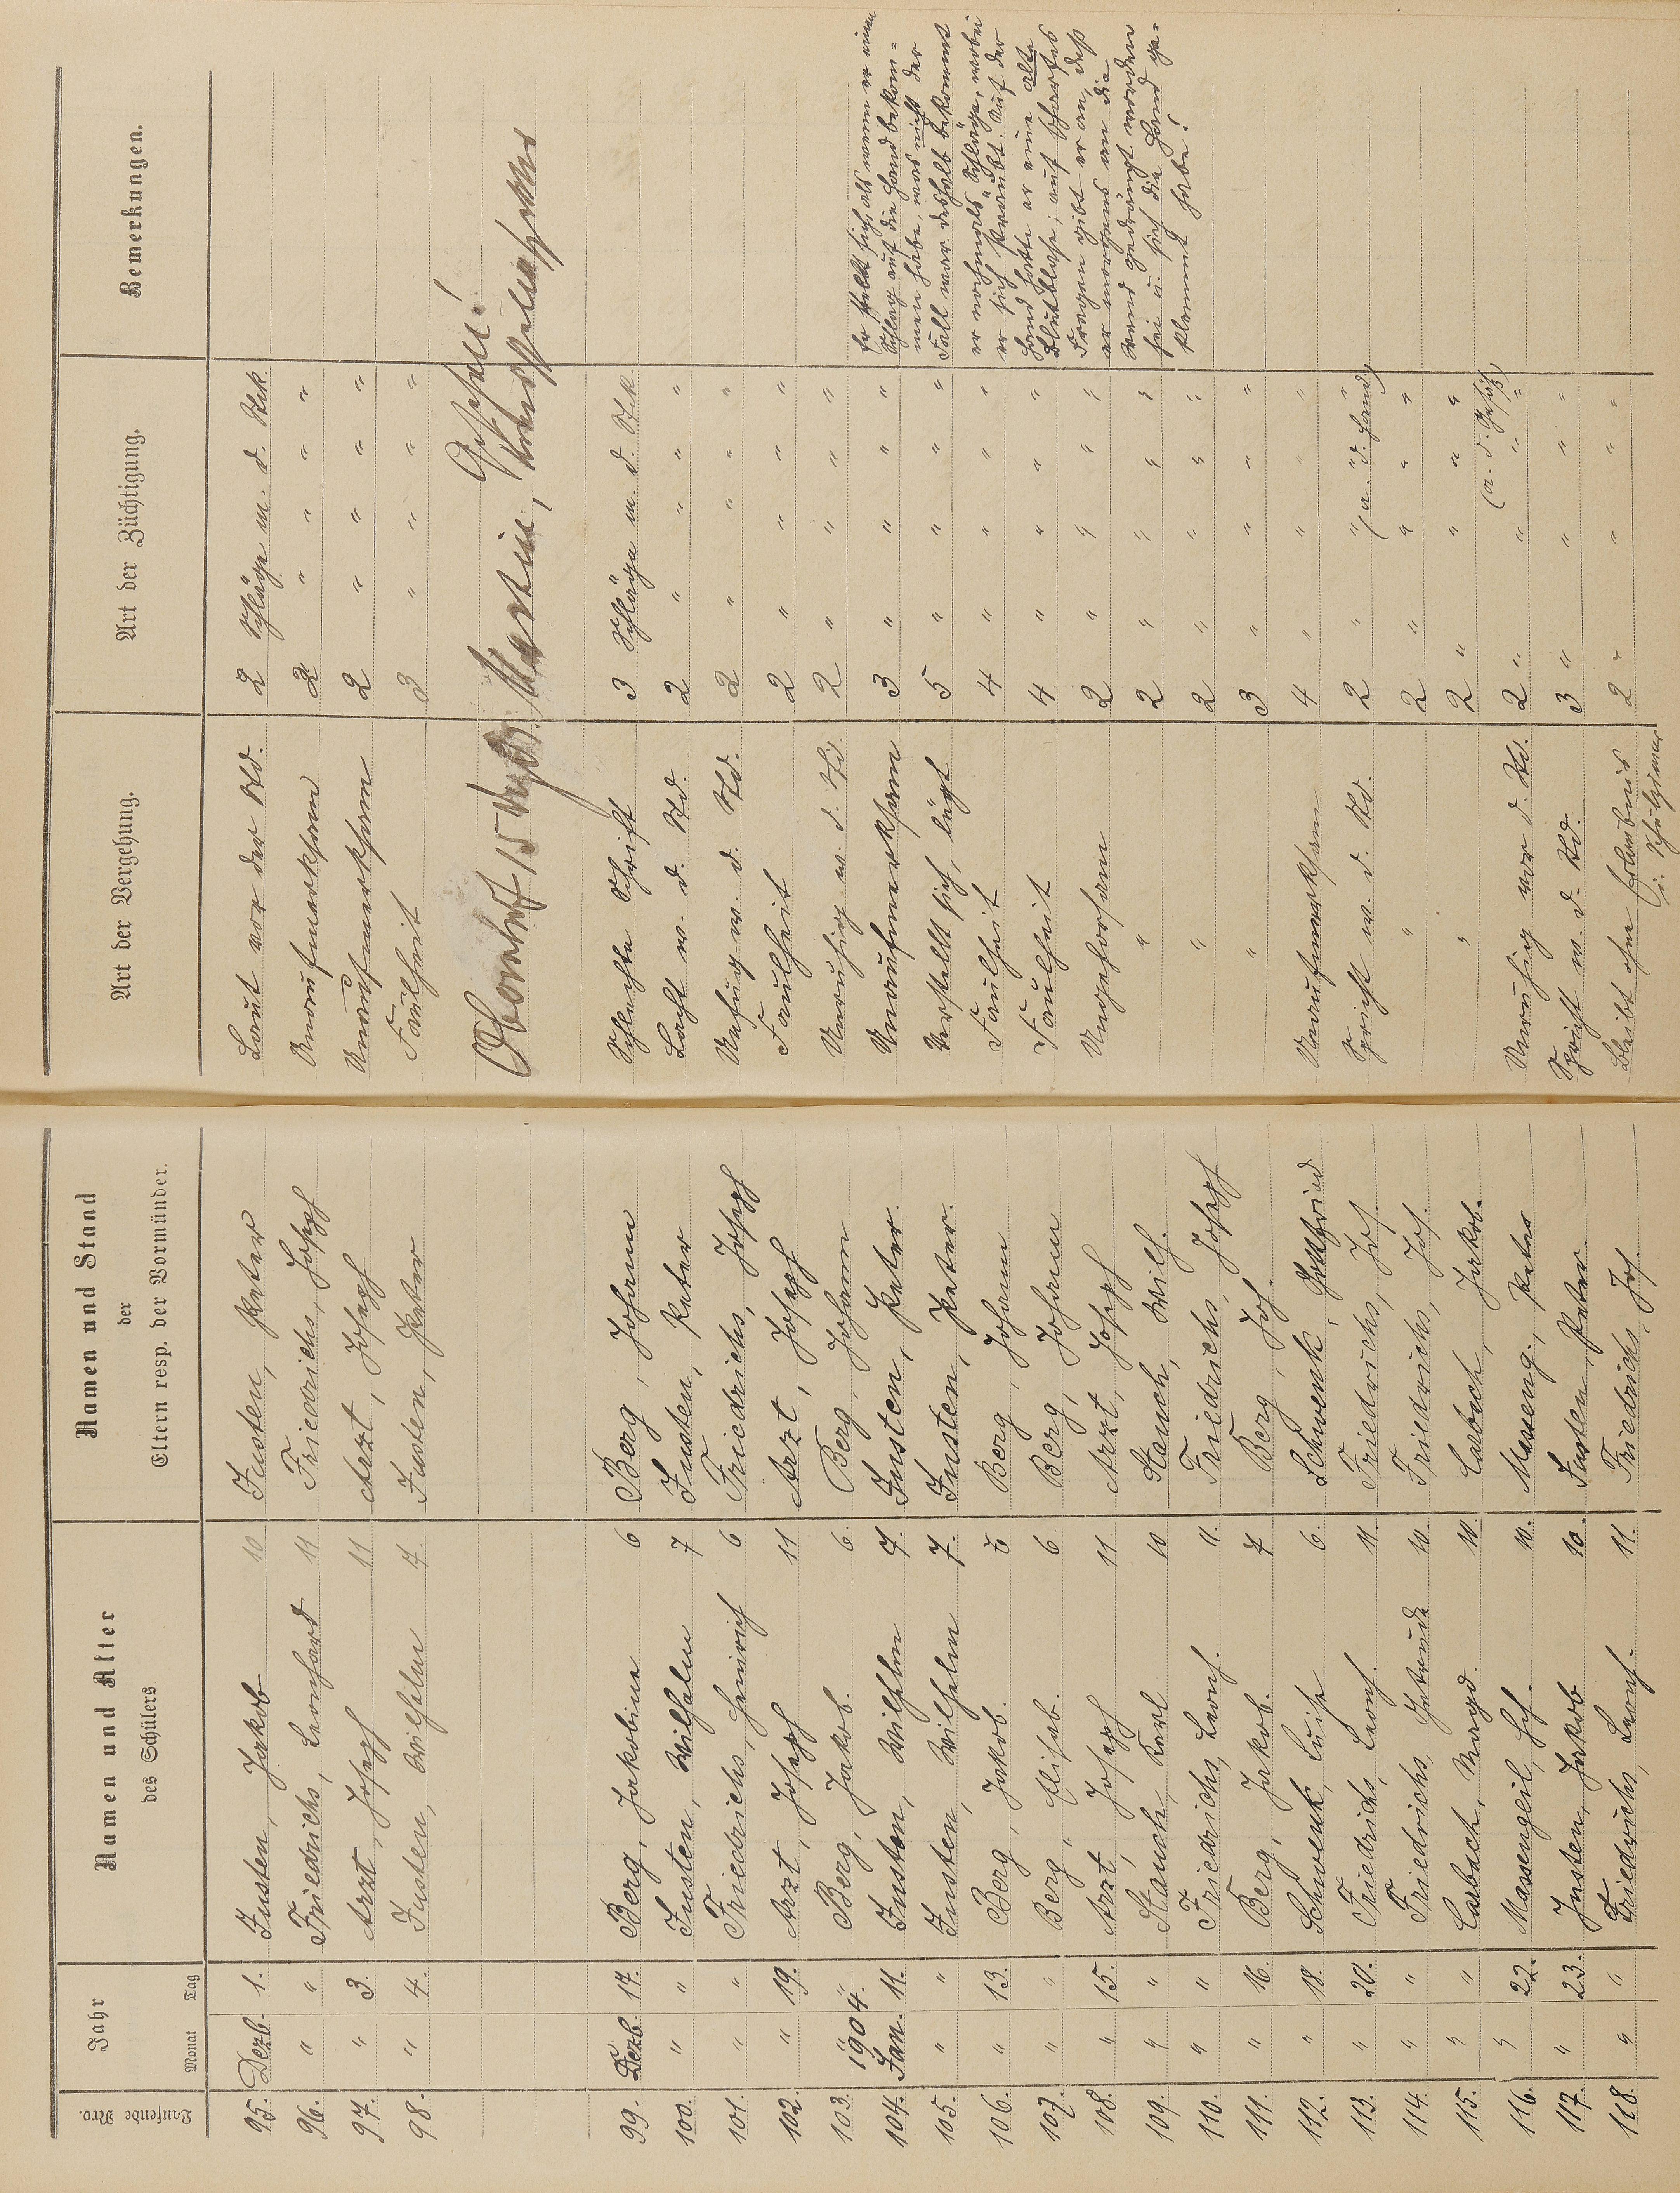 Laufende Nro.
Jahr
Monat Tag
Namen und Alter
des Schülers
Namen und Stand
der
Eltern resp. der Vormünder.
Art der Vergehung.
Art der Züchtigung.
Bemerkungen.
95. Dezb. 1. Justen, Jakob 10 Justen, Peter Laut vor der Std. 2 Schläge m. d. Stck.
96. " " Friedrichs, Leonhard 11 Friedrichs, Joseph Unaufmerksam 2 " " " "
97. " 3. Arzt, Joseph 11 Arzt, Joseph Unaufmerksam 2 " " " "
98. " 4. Justen, Wilhelm 7. Justen, Peter Faulheit 3 " " " "
Gesehen!
15 Martin, Kreisschulinspektor
99. Dezb. 17. Berg, Jakobine 6 Berg, Johann Schlechte Schrift 3 Schläge m. d. Stck.
100. " " Justen, Wilhelm 7 Justen, Peter Lacht w. d. Std. 2 " " " "
101. " " Friedrichs, Heinrich 6 Friedrichs, Joseph Unfug w. d. Std. 2 " " " "
102. " 19. Arzt, Joseph 11 Arzt, Joseph Faulheit 2 " " " "
103. " " Berg, Jakob. 6. Berg, Johann Unruhig w. d. Std. 2 " " " "
1904.
104. Jan. 11. Justen, Wilhelm 7. Justen, Peter. Unaufmerksam 3 " " " "
105. " " Justen, Wilhelm 7. Justen, Peter. Verstellt sich, lügt 5 " " " "
Er stellt sich, als wenn er einen
Schlag auf die Hand bekom=
men habe, was nicht der
Fall war deshalb bekommt
er nochmals Schläge, wobei
er sich sträubt. Auf der
Hand hatte er eine alte
Blutblase; auf scharfes
Fragen gibt er an, daß
er morgens an die
Wand gedrängt worden
sei u. sich die Hand ge=
klemmt habe!
106. " 13. Berg, Jakob. 6 Berg, Johann Faulheit 4 " " " "
107. " " Berg, Elisab. 6 Berg, Johann Faulheit 4 " " " "
108. " 15. Arzt, Joseph 11 Arzt, Joseph Ungehorsam 2 " " " "
109. " " Stauch, Karl 10 Stauch, Wilh. " 2 " " " "
110. " " Friedrichs, Leonh. 11. Friedrichs, Joseph " 2 " " " "
111. " 16. Berg, Jakob. 7 Berg, Joh. " 3 " " " "
112. " 18. Schwenk, Luise 6. Schwenk, Gottfried Unaufmerksam 4 " " " "
113. " 20. Friedrichs, Leonh. 11. Friedrichs, Jos. Spricht w. d. Std. 2 " " " "
(a. d. Hand)
114. " " Friedrichs, Gertrude 10. Friedrichs, Jos. " 2 " " " "
115. " " Carbach, Magd. 10. Carbach, Jakob. " 2 " " "
(a. d. Gesäß)
116. " 22. Massengeil, Jos. 10. Masseng., Peter Unruhig vor d. Std. 2 " " " "
117. " 23. Justen, Jakob 10. Justen, Peter. Spricht w. d. Std. 3 " " " "
118. " " Friedrichs, Leonh. 11. Friedrichs, Jos. Bleibt ohne Erlaubnis 2 " " " "
i. Schulzimmer